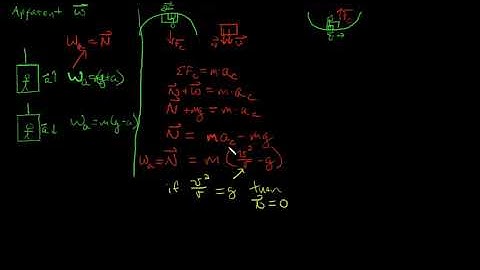 Apparent w⃗
Wₐ = N⃗
a⃗↑ Wₐ = m(g+a)
a⃗↓ Wₐ = m(g-a)
F_c
ΣF_c = m·a_c
N⃗ + w⃗ = m·a_c
N⃗ + mg = m·a_c
N⃗ = ma_c - mg
Wₐ = N⃗ = m(v²/r - g)
if v²/r = g then
N⃗ = 0